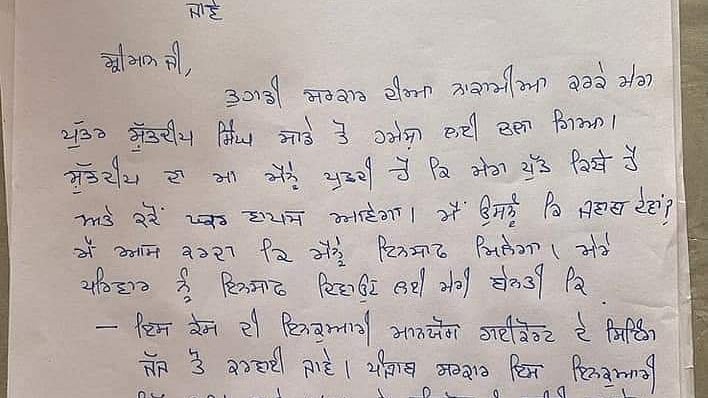 ਜਾਵੇ
ਸ਼੍ਰੀਮਾਨ ਜੀ,
ਤੁਹਾਡੀ ਸਰਕਾਰ ਦੀਆ ਨਾਕਾਮੀਆ ਕਰਕੇ ਮੇਰਾ
ਪੁੱਤਰ ਸ਼ੁੱਭਦੀਪ ਸਿੰਘ ਸਾਡੇ ਤੋ ਹਮੇਸ਼ਾ ਲਈ ਚਲਾ ਗਿਆ।
ਸ਼ੁੱਭਦੀਪ ਦਾ ਮਾ ਮੈਨੂੰ ਪੁਛਦੀ ਹੈ ਕਿ ਮੇਰਾ ਪੁੱਤ ਕਿਥੇ ਹੈ
ਅਤੇ ਕਦੋਂ ਘਰ ਵਾਪਸ ਆਵੇਗਾ। ਮੈਂ ਉਸਨੂੰ ਕਿ ਜਵਾਬ ਦੇਵਾਂ?
ਮੈਂ ਆਸ ਕਰਦਾ ਕਿ ਮੈਨੂੰ ਇਨਸਾਫ ਮਿਲੇਗਾ। ਮੇਰੇ
ਪਰਿਵਾਰ ਨੂੰ ਇਨਸਾਫ ਦਿਵਾਉਣ ਲਈ ਮੇਰੀ ਬੇਨਤੀ ਕਿ
– ਇਸ ਕੇਸ ਦੀ ਇਨਕੁਆਰੀ ਮਾਨਯੋਗ ਹਾਈਕੋਰਟ ਦੇ ਸਿਟਿੰਗ
ਜੱਜ ਤੋਂ ਕਰਵਾਈ ਜਾਵੇ। ਪੰਜਾਬ ਸਰਕਾਰ ਇਸ ਇਨਕੁਆਰੀ